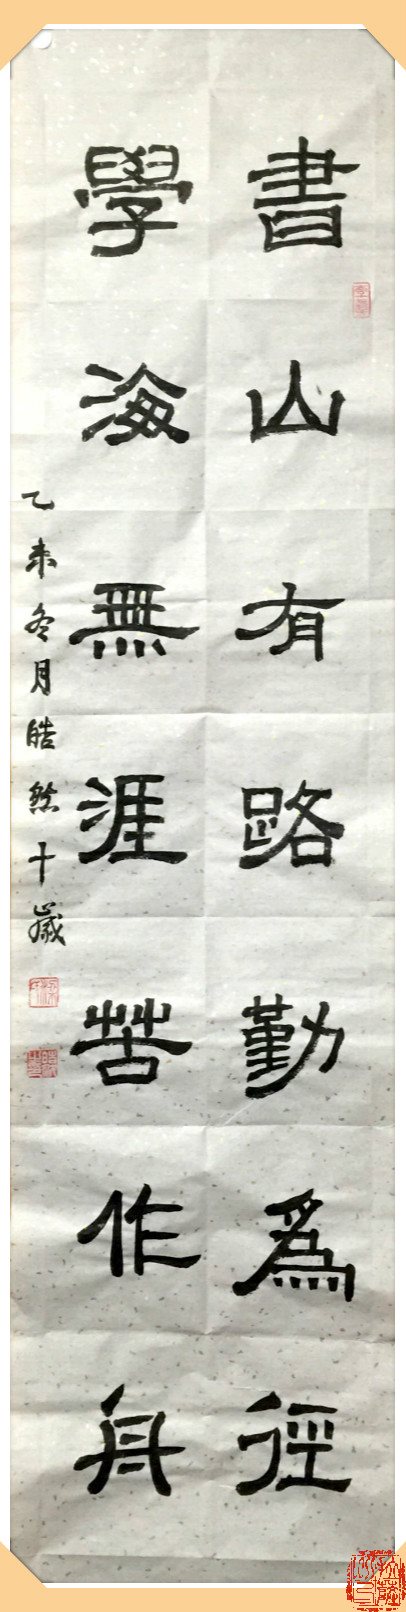 書山有路勤為徑
學海無涯苦作舟
乙未冬月皓然十歲